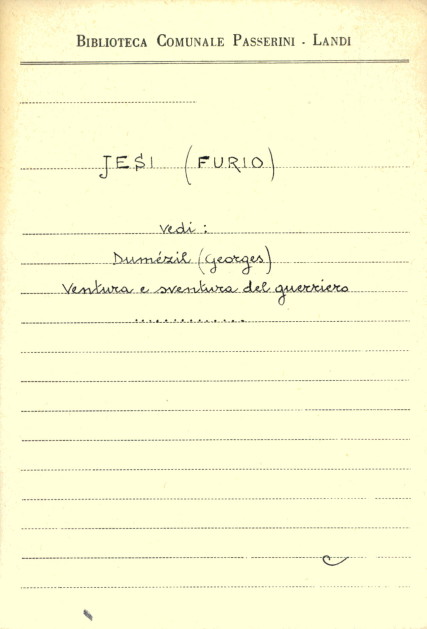 BIBLIOTECA COMUNALE PASSERINI - LANDI
JESI (FURIO)
vedi :
Dumézil (Georges)
Ventura e sventura del guerriero
.............